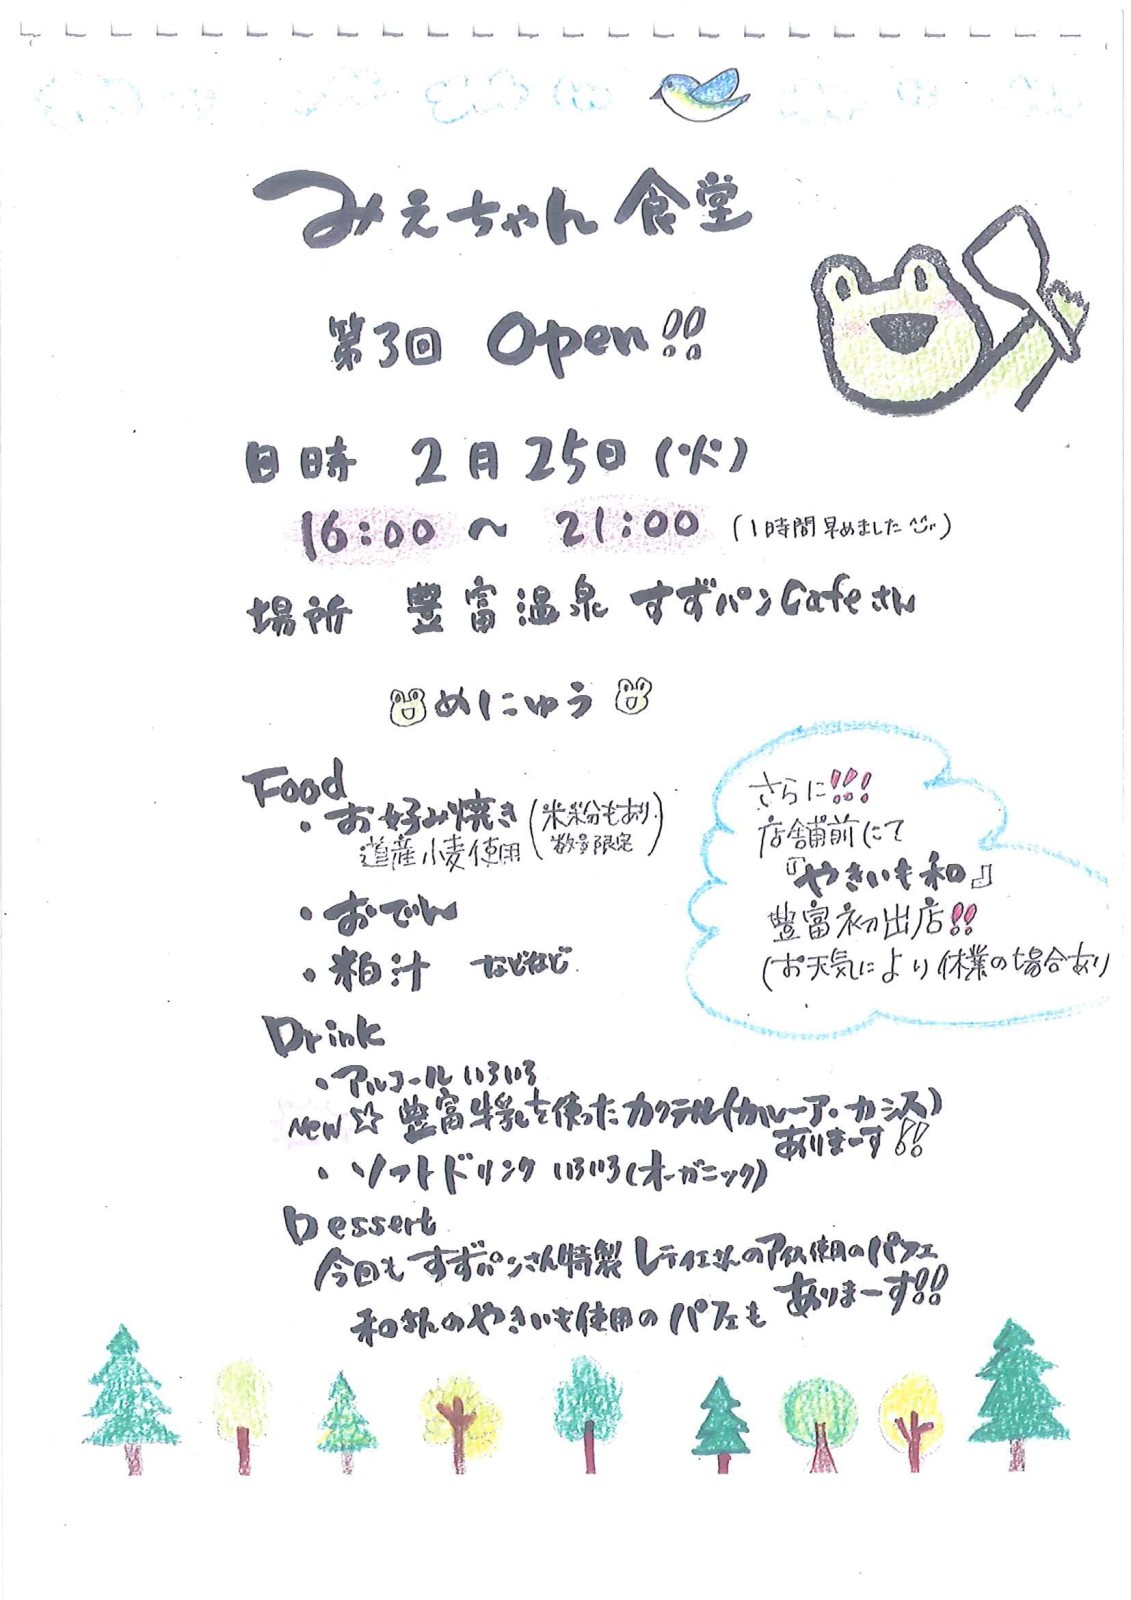 みえちゃん食堂
第3回 Open!!
日時 2月25日(火)
16:00 〜 21:00 (1時間早めました)
場所 豊富温泉 すずパンCafeさん
めにゅう
Food
・お好み焼き (米粉もあり
道産小麦使用 数量限定)
・おでん
・粕汁 などなど
さらに!!!
店舗前にて
『やきいも和』
豊富初出店!!
(お天気により休業の場合あり
Drink
・アルコールいろいろ
New☆豊富牛乳を使ったカクテル(カルーア・カシス)
ありまーす!!
・ソフトドリンクいろいろ(オーガニック)
Dessert
今回もすずパンさん特製レティエさんのアイス使用のパフェ
和さんのやきいも使用のパフェも ありまーす!!